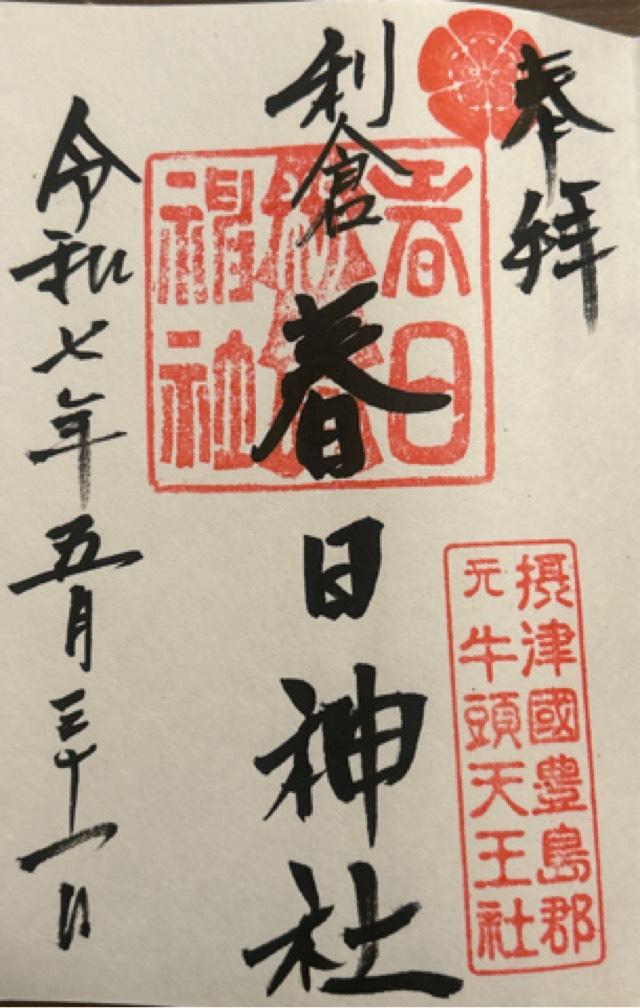 奉拝
利倉
春日神社
春日
神社
摂津國豊島郡
元牛頭天王社
令和七年五月三十一日